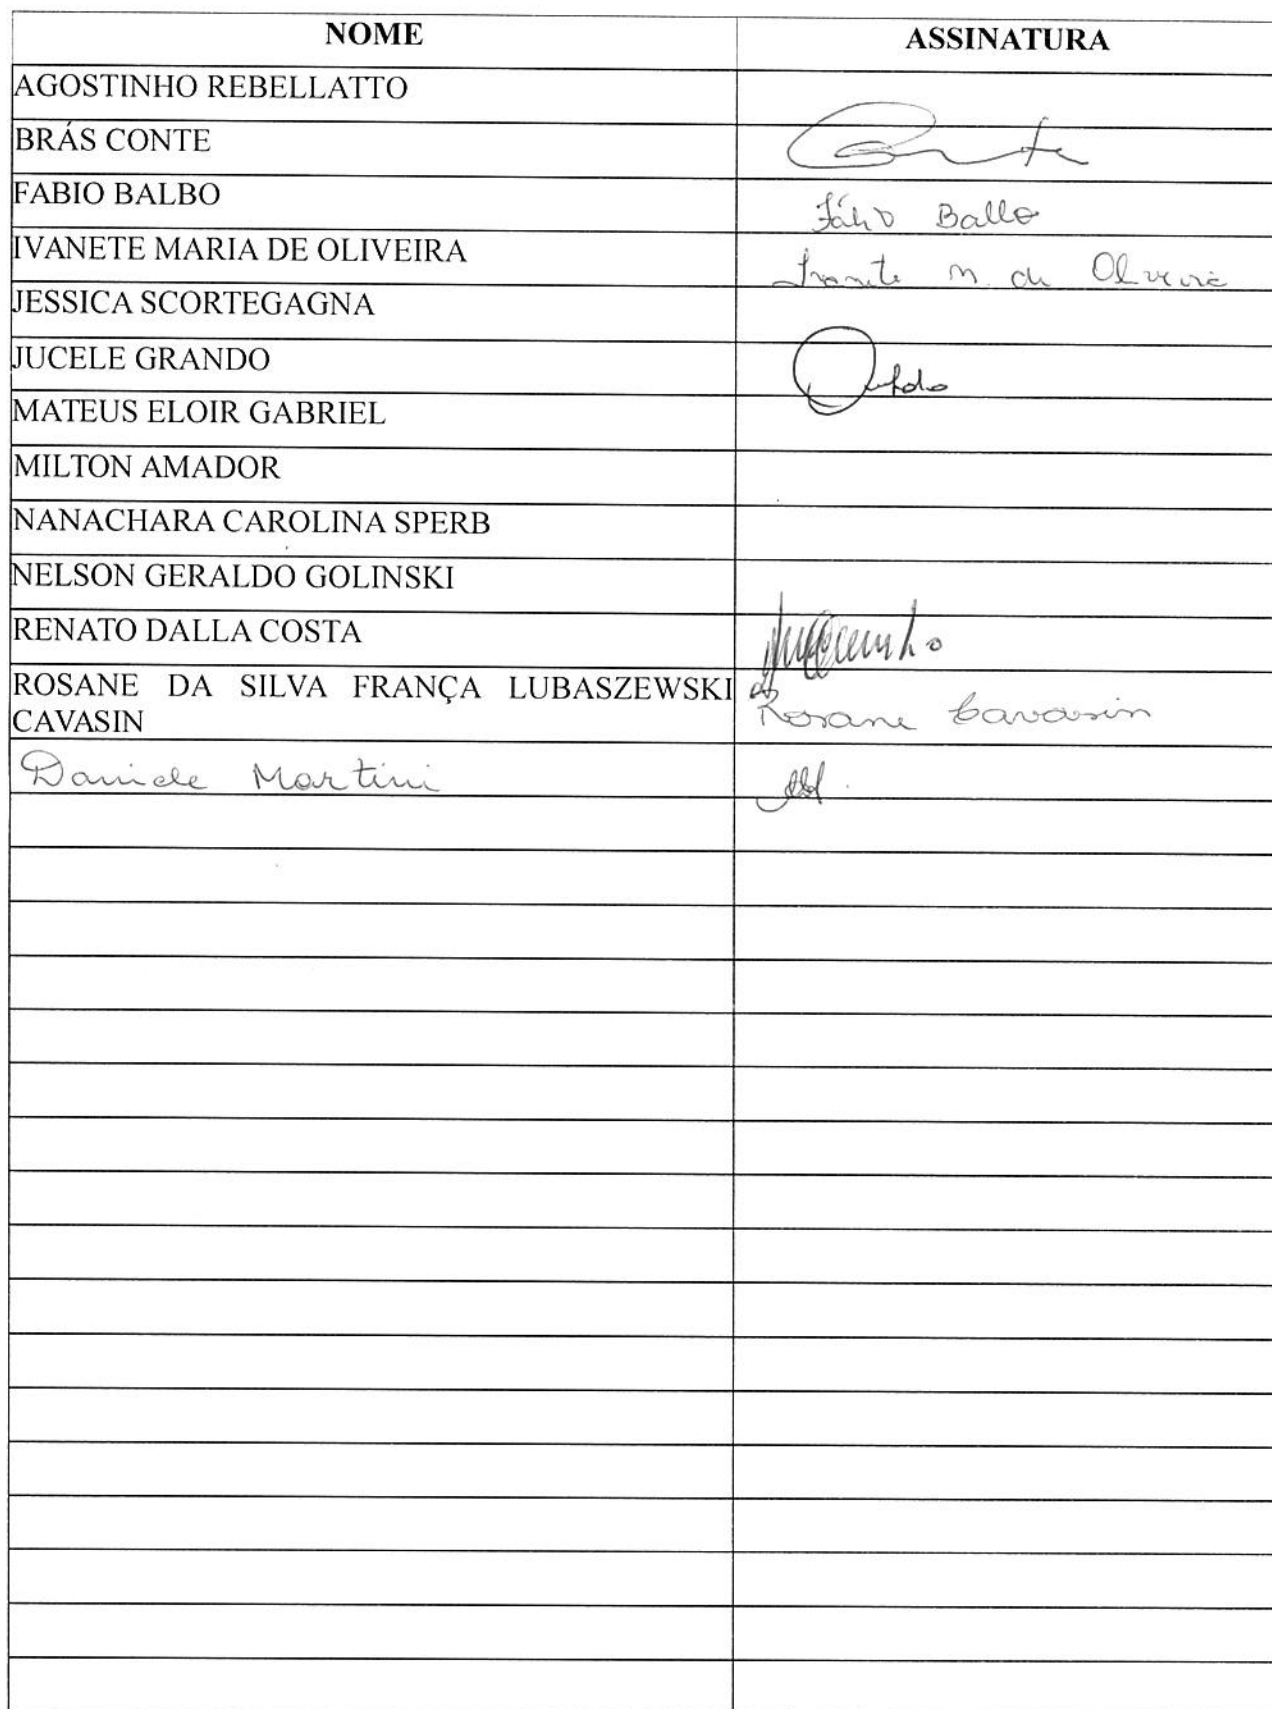 NOME ASSINATURA
AGOSTINHO REBELLATTO
BRÁS CONTE Conte
FABIO BALBO Fábio Balbo
IVANETE MARIA DE OLIVEIRA Ivanete M. de Oliveira
JESSICA SCORTEGAGNA
JUCELE GRANDO
MATEUS ELOIR GABRIEL
MILTON AMADOR
NANACHARA CAROLINA SPERB
NELSON GERALDO GOLINSKI
RENATO DALLA COSTA
ROSANE DA SILVA FRANÇA LUBASZEWSKI Rosane Cavasin
CAVASIN
Daniele Martini